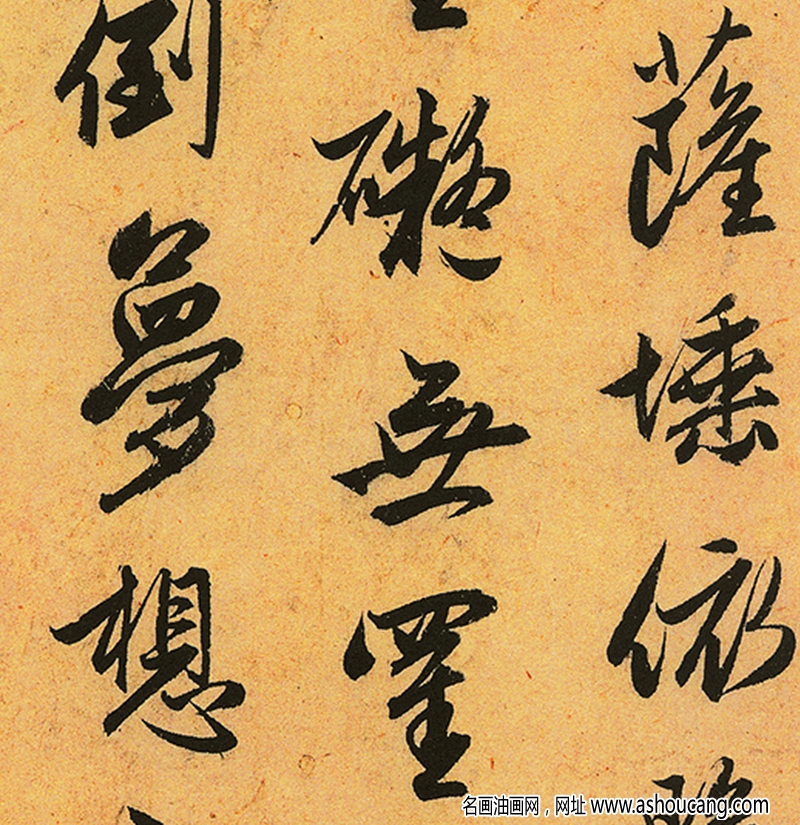 薩埵依
礙無罣
倒夢想
名画油画网，网址 www.ashoucang.com